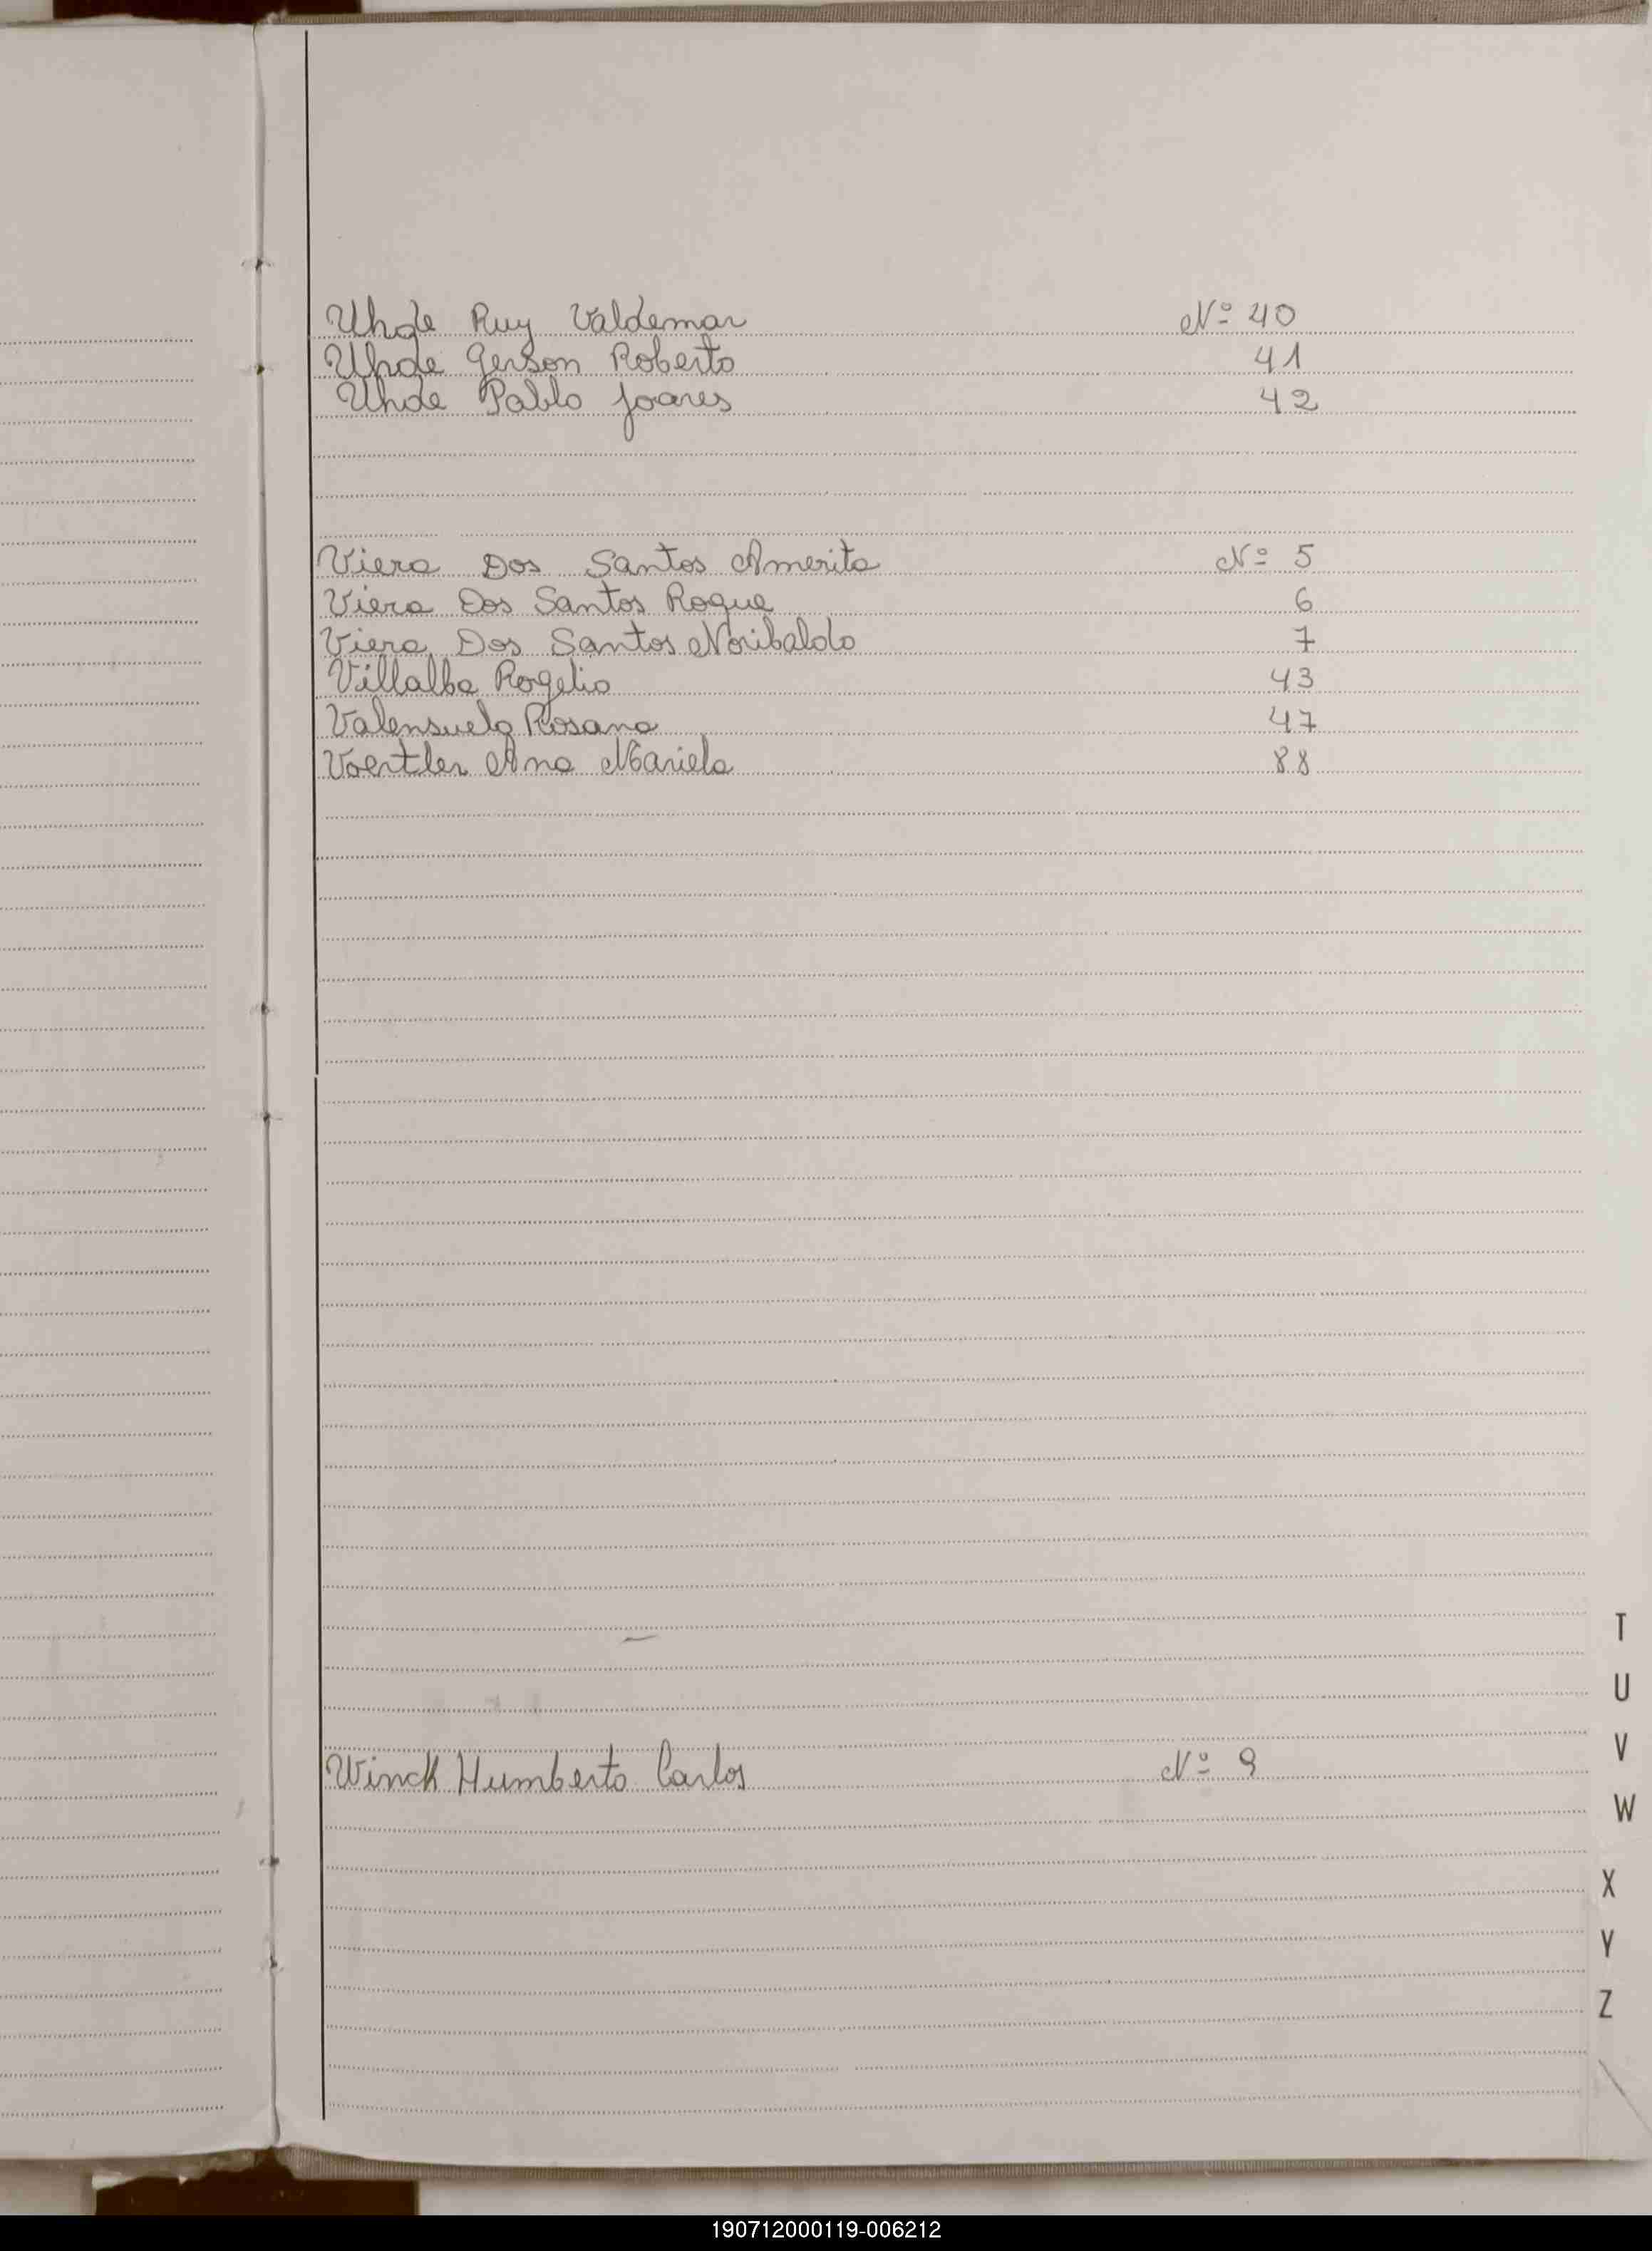 Uhde Ruy Valdemar Nº 40
Uhde Gerson Roberto 41
Uhde Pablo Joares 42
Viera Dos Santos Amerita Nº 5
Viera Dos Santos Roque 6
Viera Dos Santos Noribaldo 7
Villalba Rogelio 43
Valensuela Rosana 47
Voertler Ana Mariela 88
Winck Humberto Carlos Nº 9
T
U
V
W
X
Y
Z
190712000119-006212